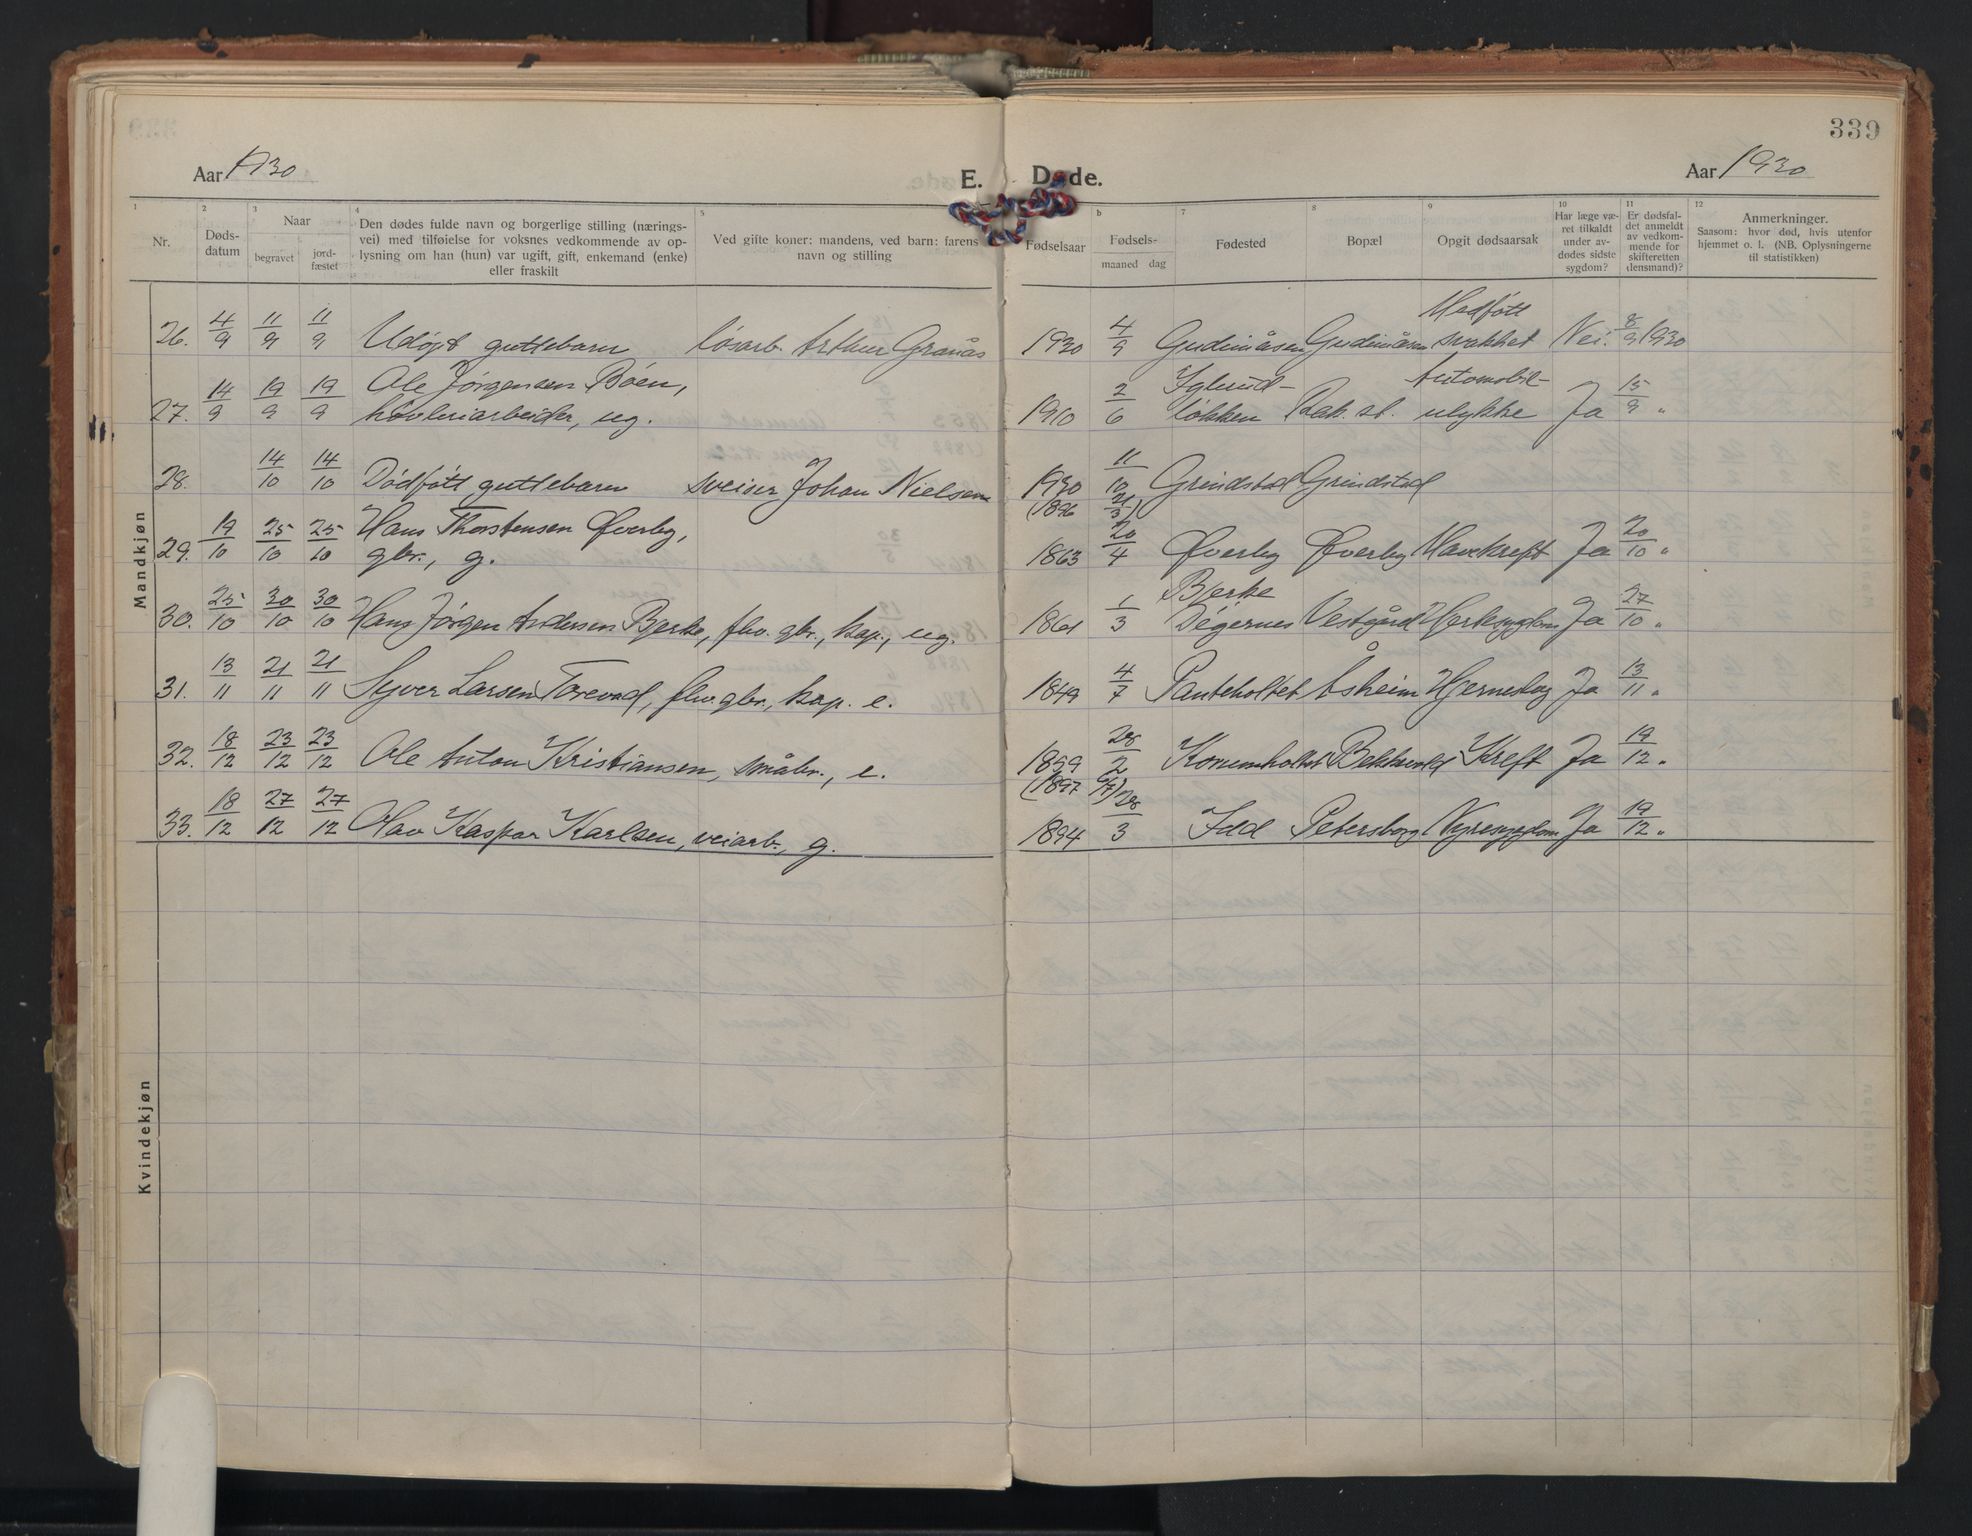 339
Aar 1930
E. Døde.
Aar 1930
1 2 3 4 5 b 7 8 9 10 11 12
Nr.
Døds-
datum
Naar
begravet
jord-
fæstet
Den dødes fulde navn og borgerlige stilling (nærings-
vei) med tilføielse for voksnes vedkommende av op-
lysning om han (hun) var ugift, gift, enkemand (enke)
eller fraskilt
Ved gifte koner: mandens, ved barn: farens
navn og stilling
Fødselsaar
Fødsels-
maaned dag
Fødested
Bopæl
Opgit dødsaarsak
Har læge væ-
ret tilkaldt
under av-
dødes sidste
sygdom?
Er dødsfal-
det anmeldt
av vedkom-
mende for
skifteretten
(lensmand)?
Anmerkninger.
Saasom: hvor død, hvis utenfor
hjemmet o. l. (NB. Oplysningerne
til statistikken)
Mandkjøn
26. 4/9 11/9 11/9 Udøpt guttebarn løsarb. Arthur Granås 1930 4/9 Gudimåsen Gudimåsen Medfött
svakhet Nei. 8/9 1930
27. 14/9 19/9 19/9 Ole Jörgensen Böen,
høvleriarbeider, ug. 1910 2/6 Iglerud-
løkken Rak. st. Automobil-
ulykke Ja 15/9 "
28. 14/10 14/10 Dödfött guttebarn sveiser Johan Nielsen 1930 11/10 Grindstad Grindstad
29. 19/10 25/10 25/10 Hans Thorstensen Øverby,
gbr., g. (1896 21/3) 1863 20/4 Øverby Øverby Mavekreft Ja 20/10 "
30. 25/10 30/10 30/10 Hans Jörgen Andersen Bjerke, fhv. gbr., kap., ug. 1861 1/3 Bjerke
Degernes Vestgård Hertesygdom Ja 27/10 "
31. 13/11 21/11 21/11 Syver Larsen Torevad, fhv. gbr., kap. e. 1849 4/7 Panteholtet Åsheim Hjerneslag Ja 13/11 "
32. 18/12 23/12 23/12 Ole Anton Kristiansen, småbr., e. 1859 28/2 Bekkevold Kreft Ja 19/12 "
33. 18/12 27/12 27/12 Olav Kaspar Karlsen, veiarb., g. (1897 6/7) 1894 28/3 Idd Petersborg Nyresygdom Ja 19/12 "
Kvindekjøn